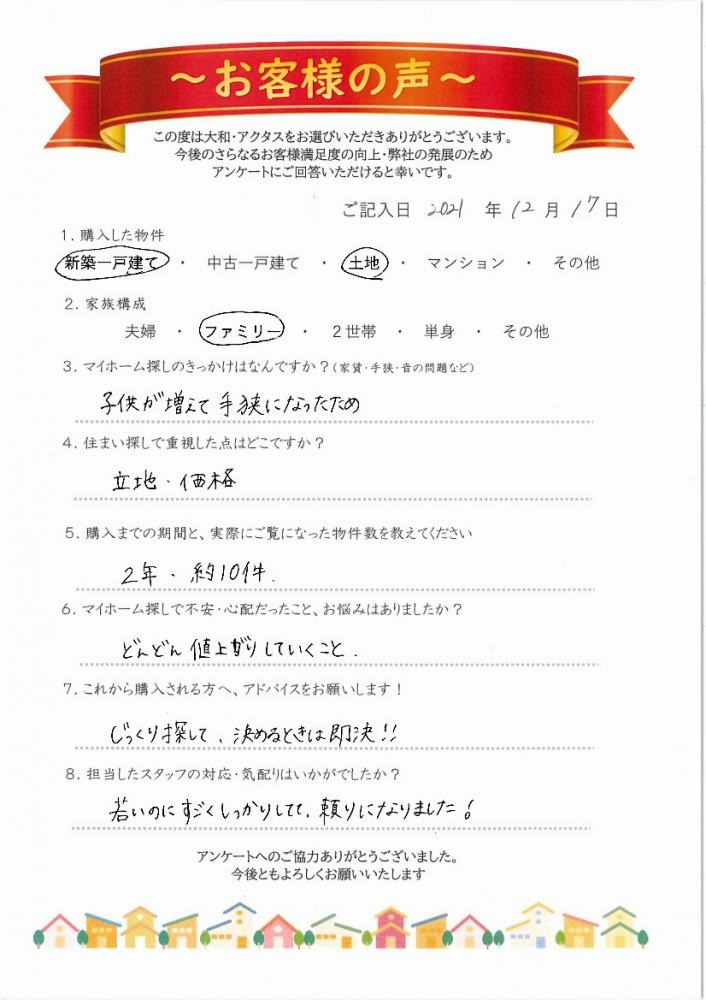 ～お客様の声～
この度は大和・アクタスをお選びいただきありがとうございます。
今後のさらなるお客様満足度の向上・弊社の発展のため
アンケートにご回答いただけると幸いです。
ご記入日 2021 年 12 月 17 日
1. 購入した物件
新築一戸建て ・ 中古一戸建て ・ 土地 ・ マンション ・ その他
2. 家族構成
夫婦 ・ ファミリー ・ 2世帯 ・ 単身 ・ その他
3. マイホーム探しのきっかけはなんですか？（家賃・手狭・音の問題など）
子供が増えて手狭になったため
4. 住まい探しで重視した点はどこですか？
立地・価格
5. 購入までの期間と、実際にご覧になった物件数を教えてください
2年・約10件.
6. マイホーム探しで不安・心配だったこと、お悩みはありましたか？
どんどん値上がりしていくこと.
7. これから購入される方へ、アドバイスをお願いします！
じっくり探して、決めるときは即決!!
8. 担当したスタッフの対応・気配りはいかがでしたか？
若いのにすごくしっかりしてて、頼りになりました！
アンケートへのご協力ありがとうございました。
今後ともよろしくお願いいたします